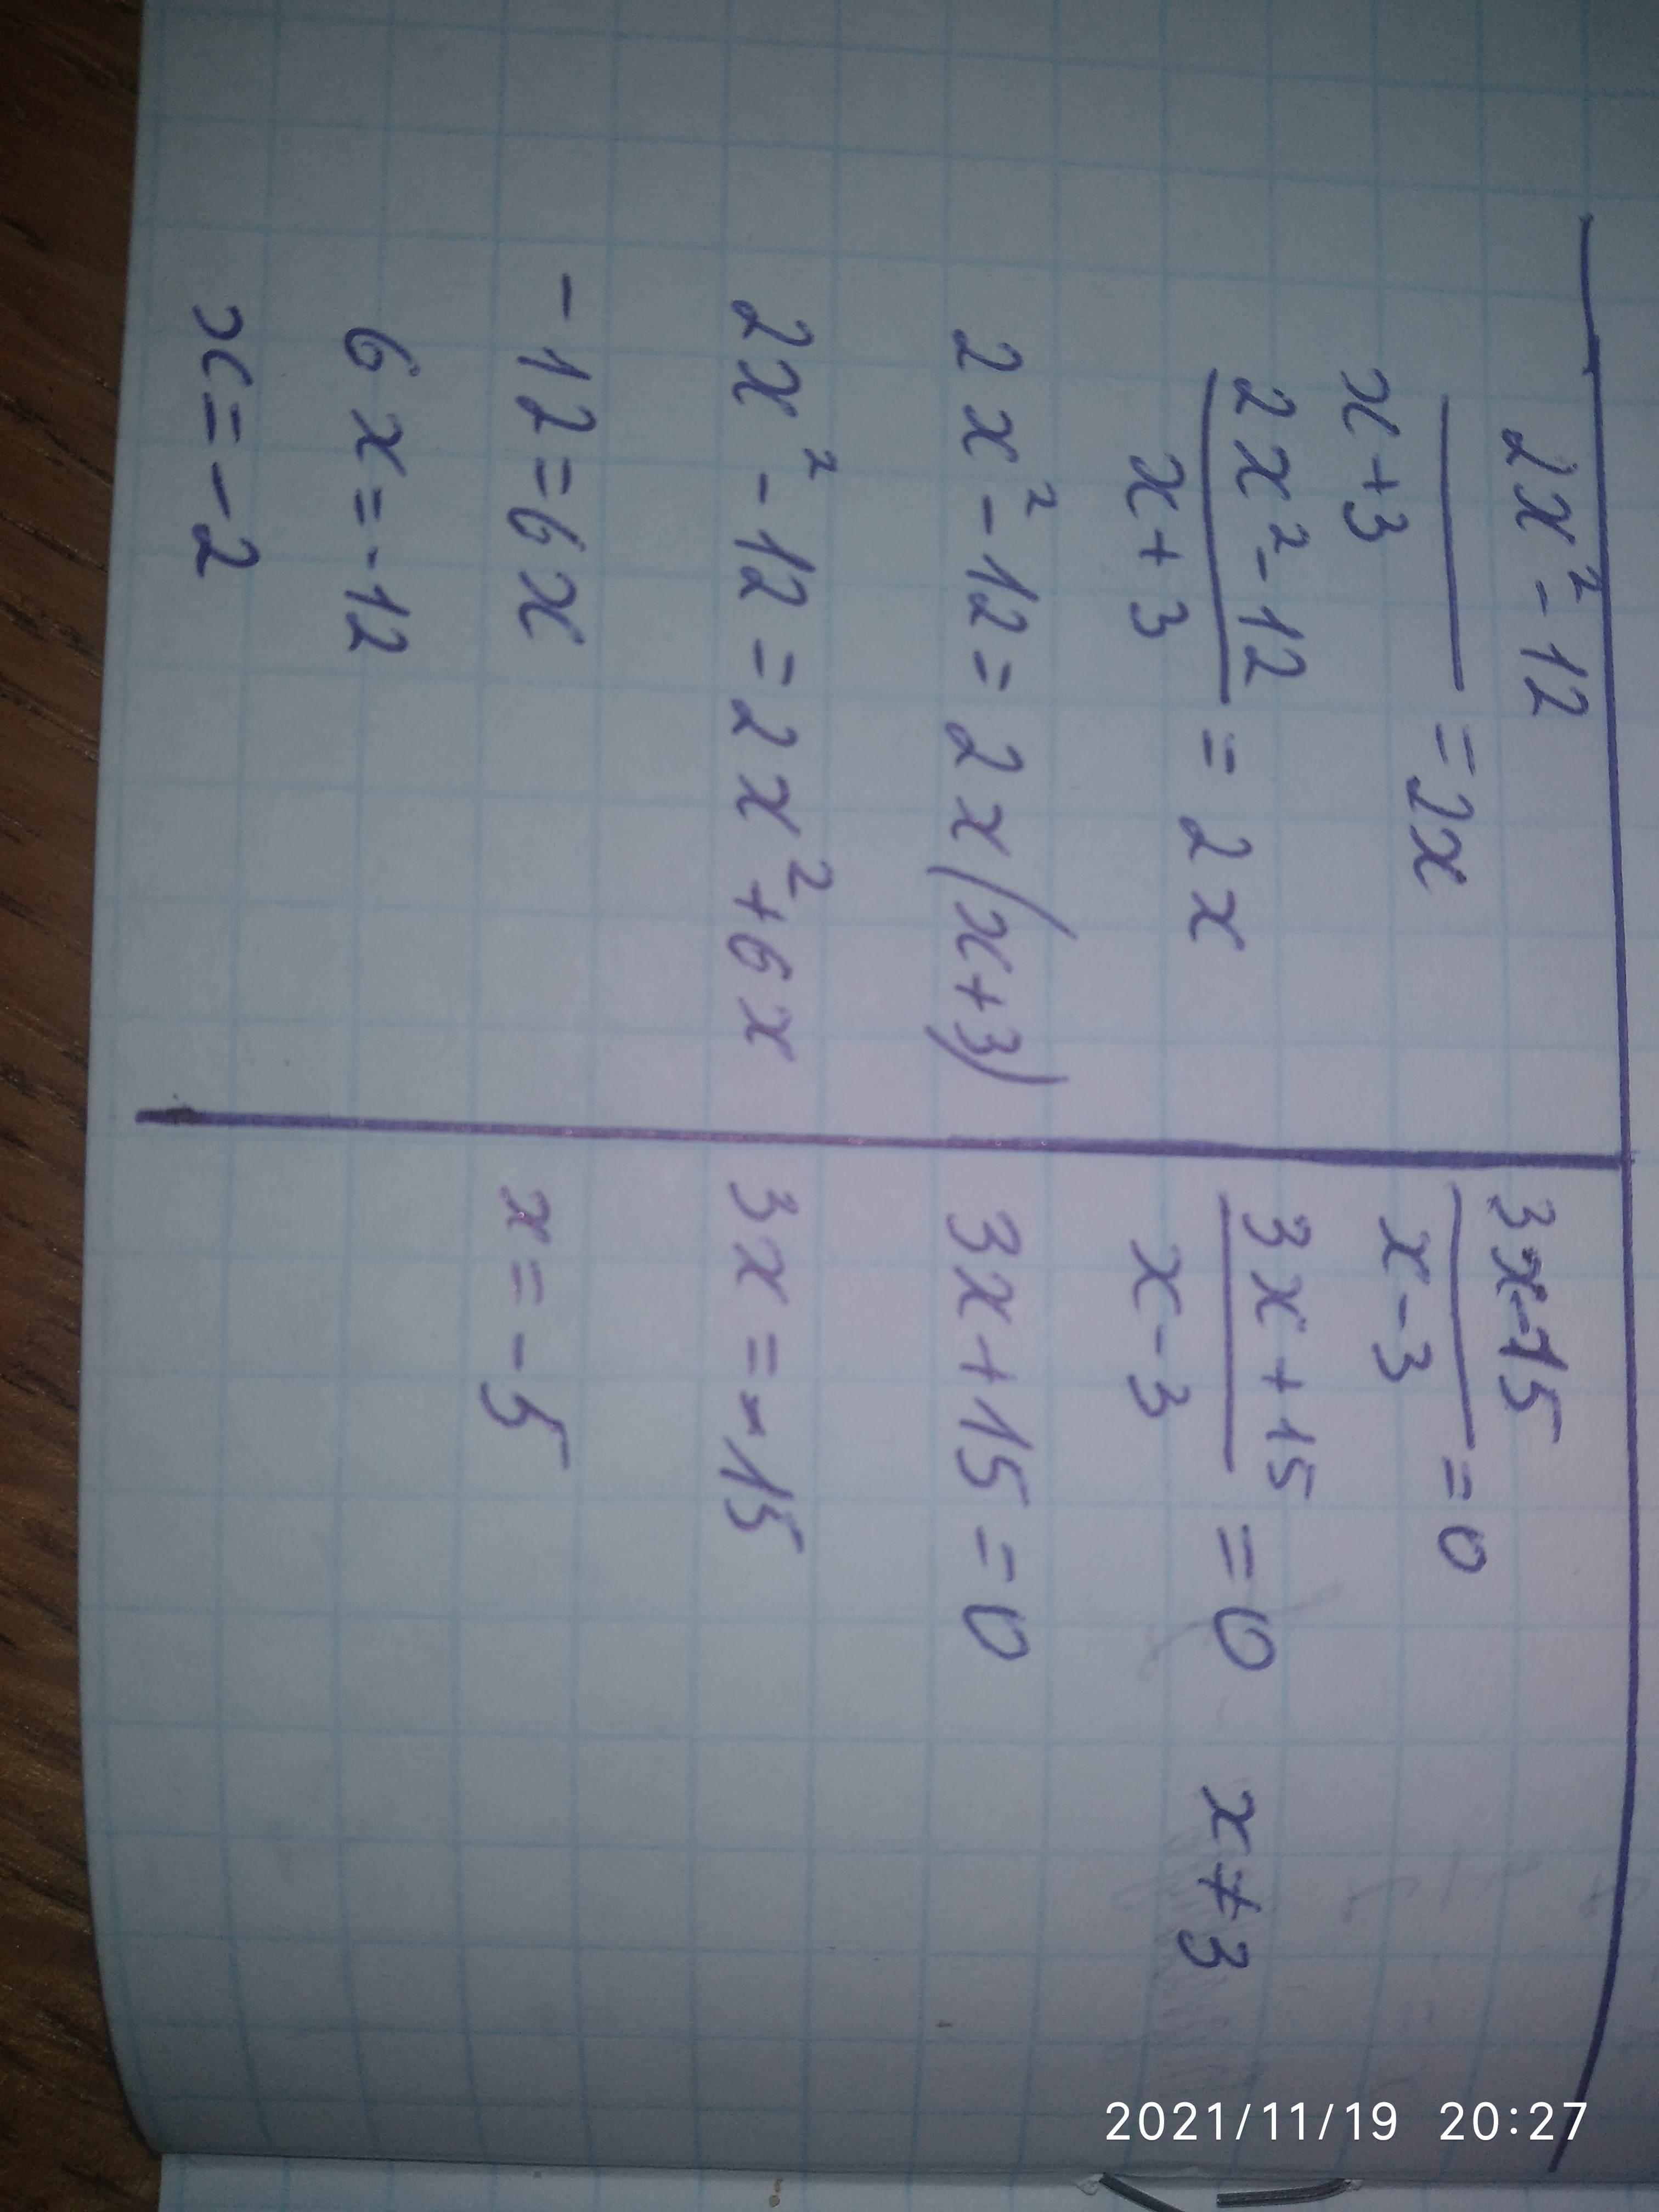 2x² - 12
――― = 2x
x + 3
2x² - 12
――― = 2x
x + 3
2x² - 12 = 2x(x + 3)
2x² - 12 = 2x² + 6x
- 12 = 6x
6x = - 12
x = - 2
3x-15
――― = 0
x - 3
3x + 15
――― = 0 x ≠ 3
x - 3
3x + 15 = 0
3x = - 15
x = - 5
2021/11/19 20:27